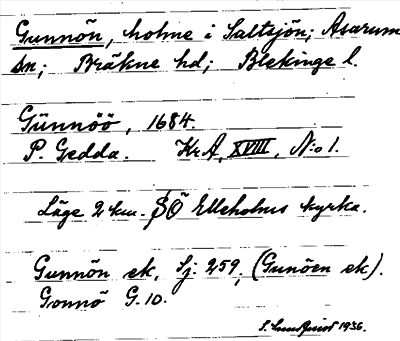 Gunnön, holme i Saltsjön; Asarum
sn; Bräkne hd; Blekinge l.
Günnöö, 1684.
P. Gedda. Kr. A, XVIII, N:o 1.
Läge 2 km. SÖ Elleholms kyrka.
Gunnön ek, Sj. 259; (Gunöen ek).
Gonnö G. 10.
S. Lundquist 1936.